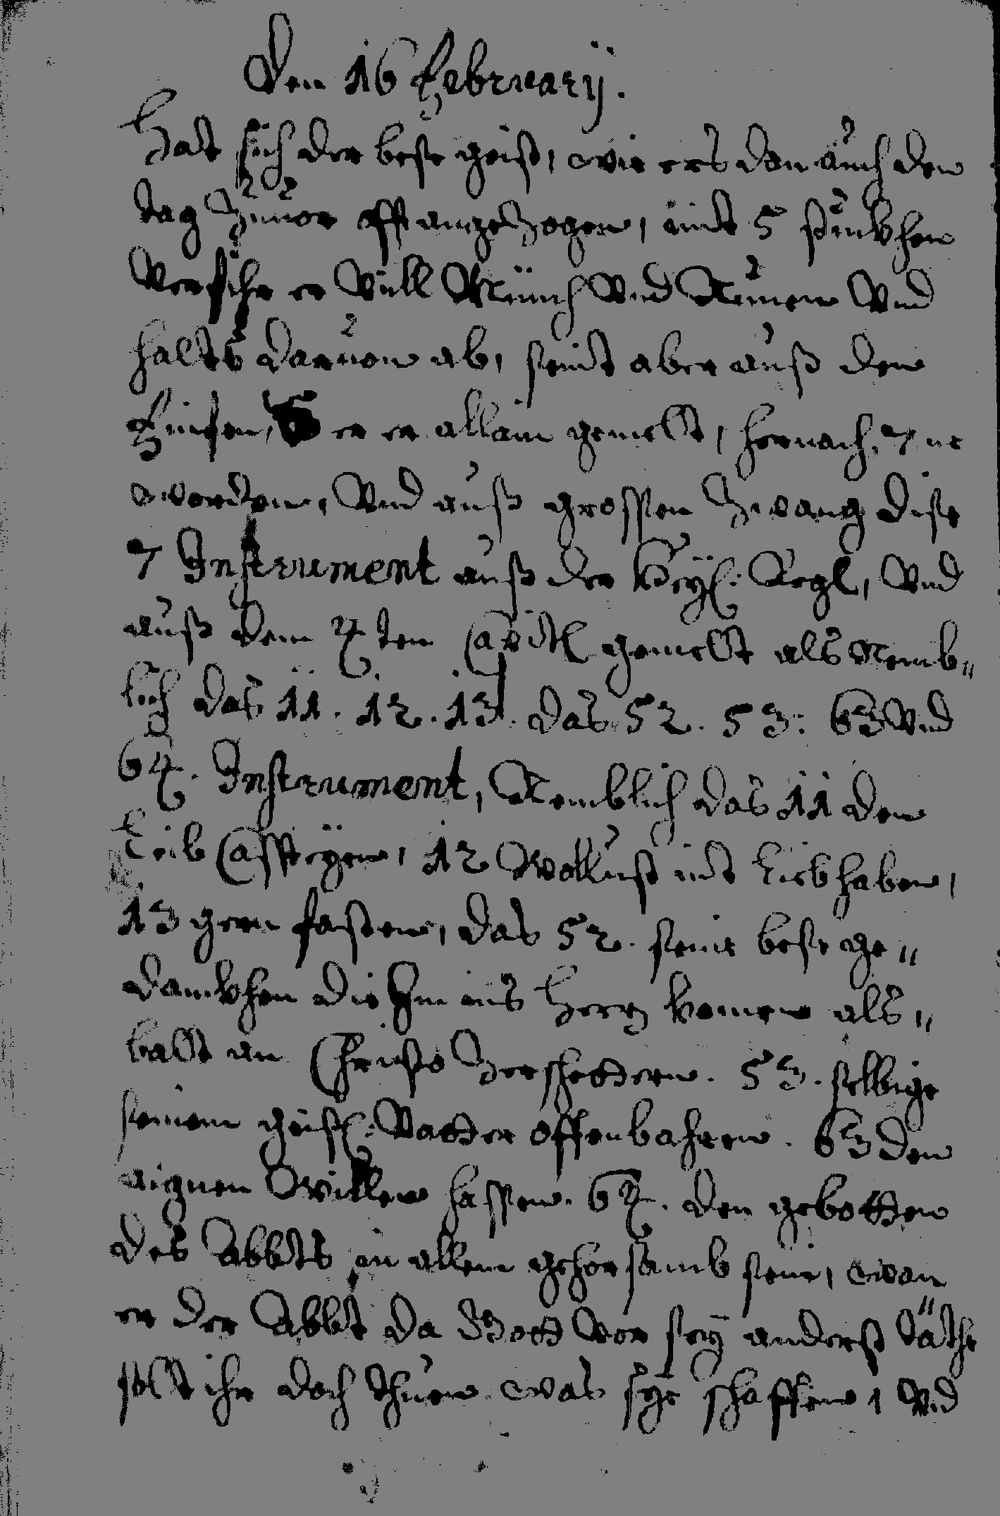 Den 16 February.
Hat sich der beße geist, wie ers dan auch den
tag Zuuor offt angeZogen, mit 5 stückhen
Verfihr er Vill Münch Vnd Nunen Vnd
halts daruon ab, seindt aber auß den
Finfen, er allain gemelt, hernach 7
worden, Vnd auß grossen Zwang diße
7 Instrument auß der Heyl: Regl, Vnd
auß dem 4 ten Capitl gemelt als Nemb„
lich das 11. 12. 13. das 52. 53: 63 Vnd
64. Instrument, Nemblich das 11 den
Leib Cassteyen, 12 Wollust nit Liebhaben,
13 gern fasten, das 52. seine beße ge„
danckhen die Im ins Herz komen als„
balt an Christo Zerschettern. 53. selbige
seinem geistl: Vatter offenbahren. 63 den
aignen Willen hassen. 64. den gebotten
des Abbts in allem gehorsamb sein, wan
er der Abbt da Gott Vor sey anderst täthe
solt ihr doch thuen was sye schaffen, Vnd